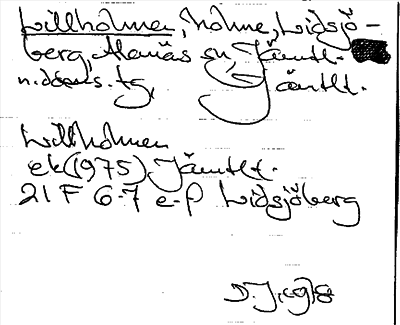 Lillholmen, holme, Lidsjö-
berg, Alanäs sn, Jämtl.
n. doms. tg, Jämtlt.
Lillholmen
ek (1975) Jämtlt.
21 F 6-7 e-f Lidsjöberg
D.J. 1978